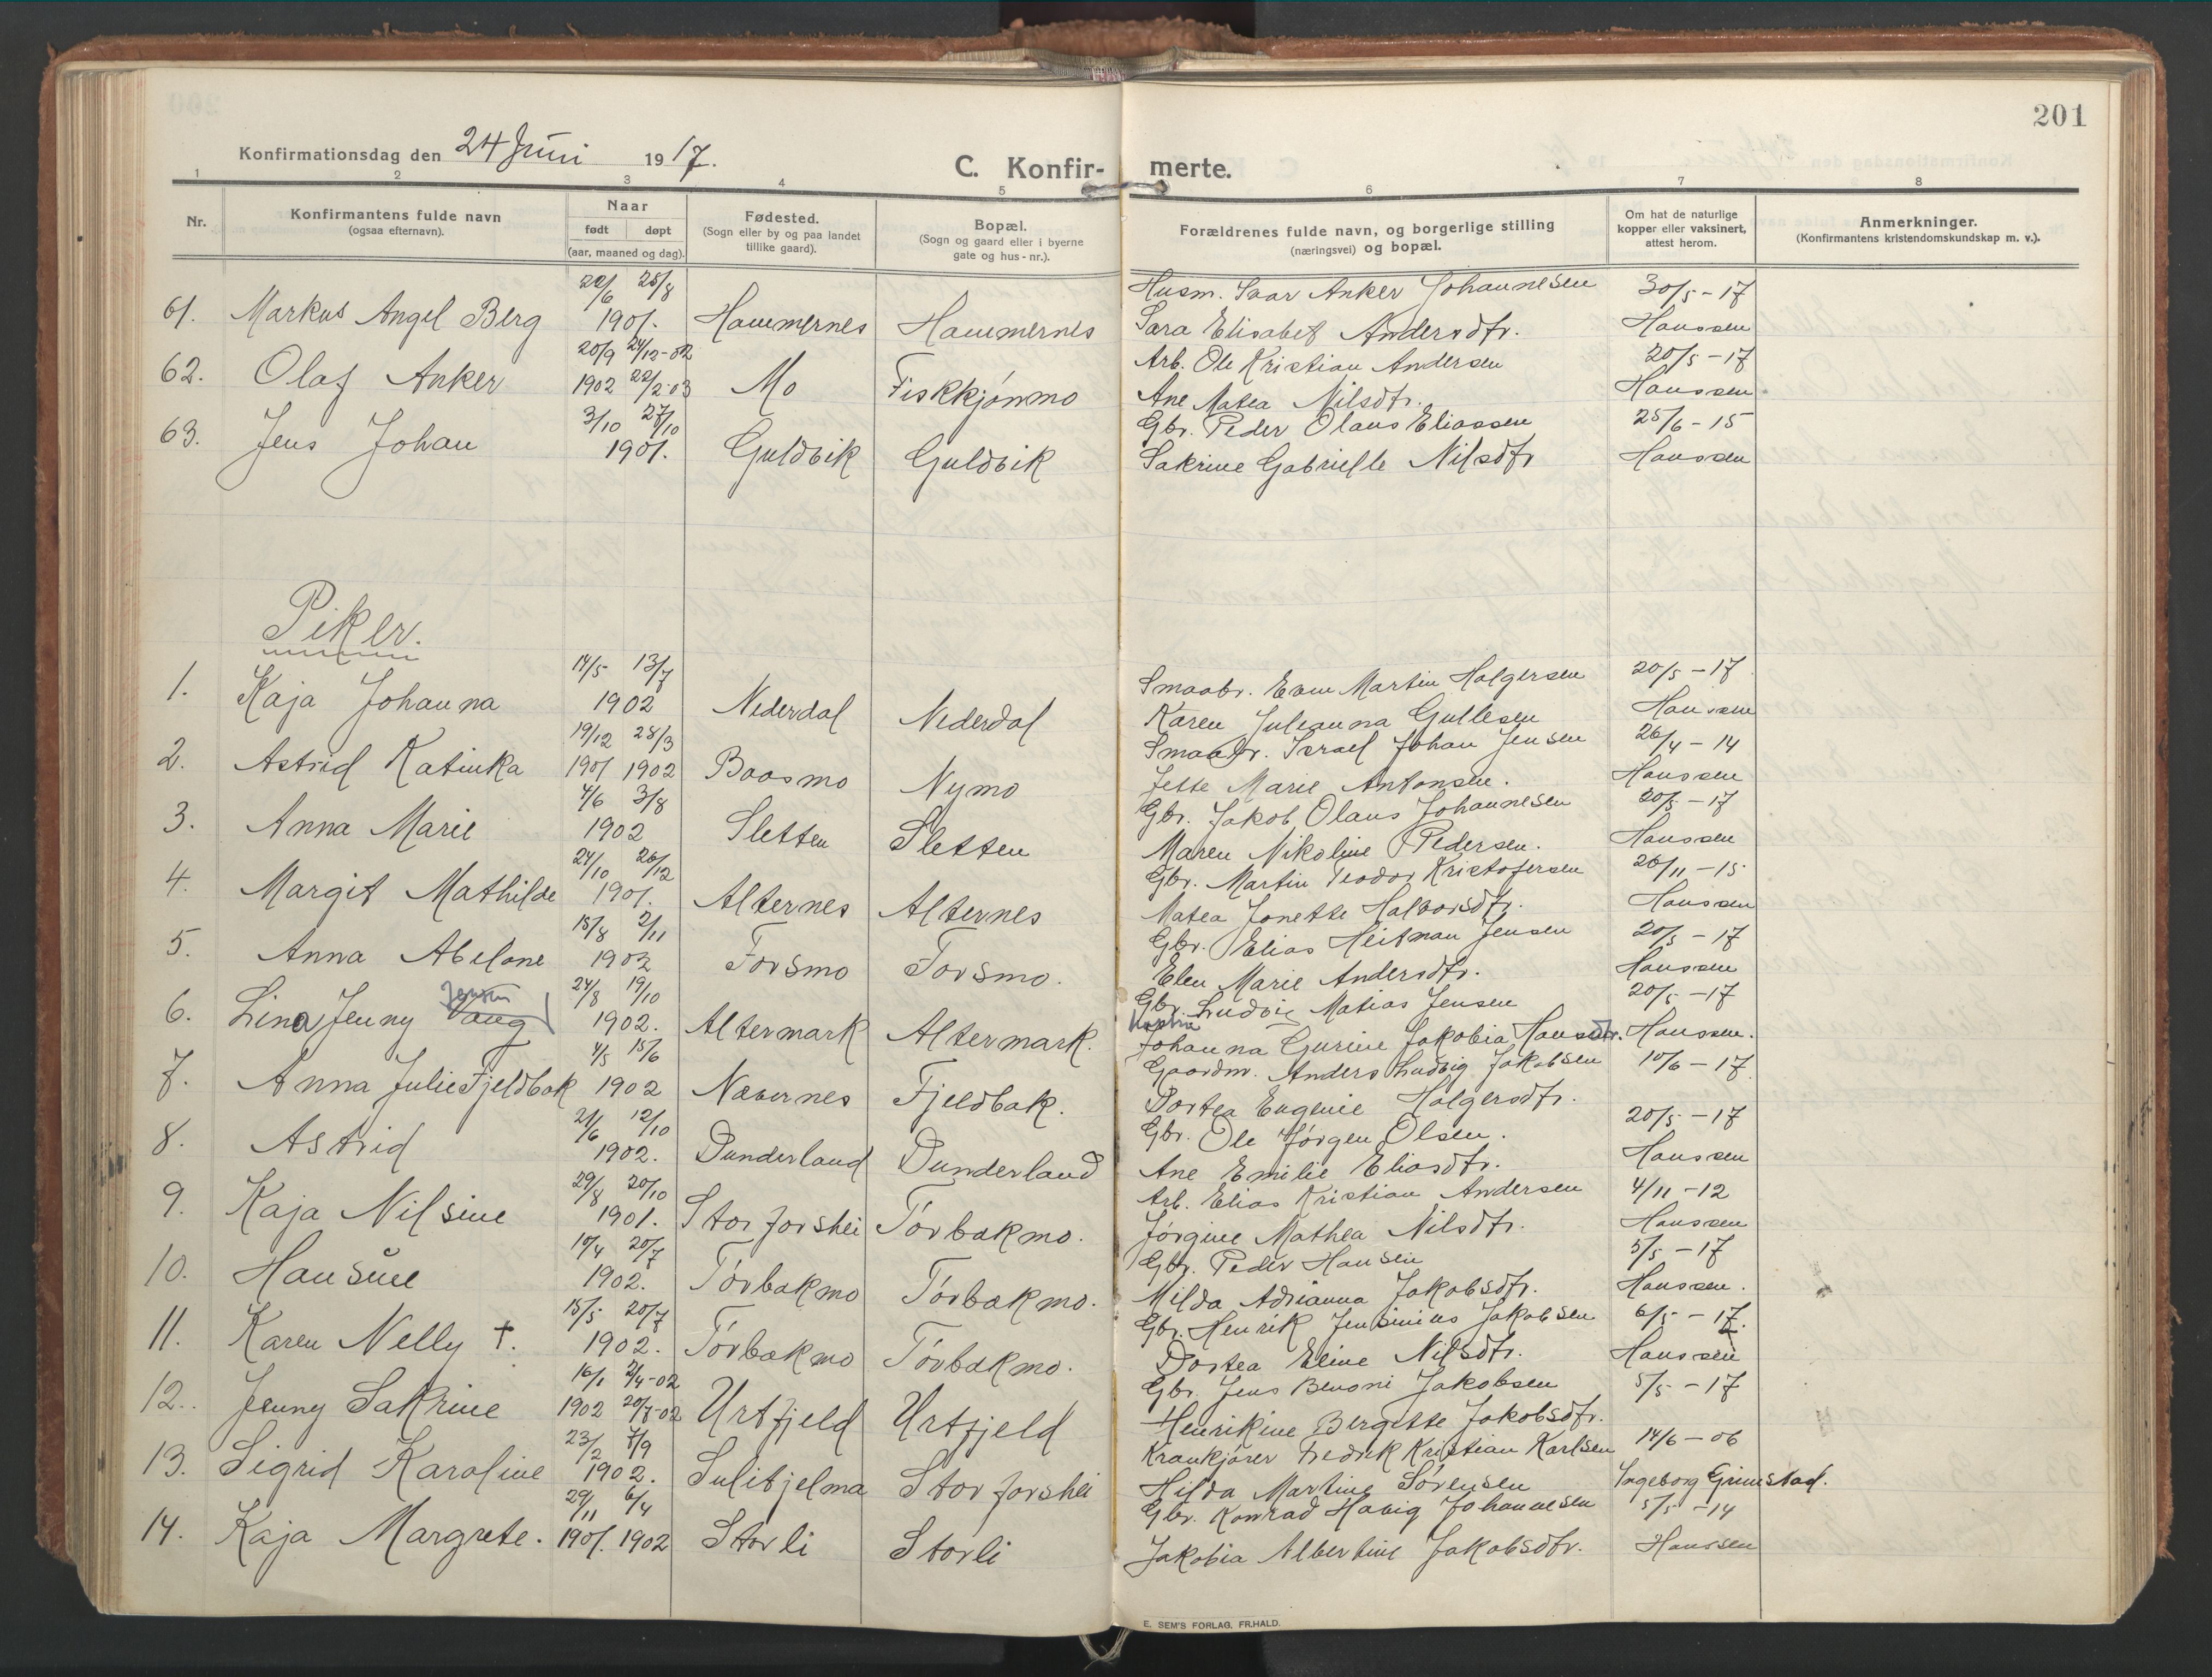 201
Konfirmationsdag den 24 Juni 1917.
C. Konfir- merte.
1 2 3 4 5 6 7 8
Nr.
Konfirmantens fulde navn
(ogsaa efternavn).
Naar
født døpt
(aar, maaned og dag).
Fødested.
(Sogn eller by og paa landet
tillike gaard).
Bopæl.
(Sogn og gaard eller i byerne
gate og hus-nr.).
Forældrenes fulde navn, og borgerlige stilling
(næringsvei) og bopæl.
Om hat de naturlige
kopper eller vaksinert,
attest herom.
Anmerkninger.
(Konfirmantens kristendomskundskap m. v.).
25/8 Husm. Ivar Anker Johannesen 30/5-17
61. Markus Angel Berg 1901. Hammernes Hammernes Sara Elisabet Andersdtr. Hanssen
20/9 24/12-02 Arb. Ole Kristian Andersen 20/5-17
62. Olaf Anker 1902 22/2-03 Mo Fiskkjønmo Ane Matea Nilsdtr. Hanssen
3/10 27/10 Gbr. Peder Olaus Eliassen 25/6-15
63. Jens Johan 1901. Guldvik Guldvik Sakrine Gabrielle Nilsdtr Hanssen
Piker.
14/5 13/7 Smaabr. Even Martin Holgersen 20/5-17
1. Kaja Johanna 1902 Nederdal Nederdal Karen Juleanna Gullesen Hanssen
19/12 28/3 Smaabr. Israel Johan Jensen 26/4-14
2. Astrid Katinka 1901 1902 Baasmo Nymo Jette Marie Antonsen. Hanssen
4/6 3/8 Gbr. Jakob Olaus Johannesen 20/5-17
3. Anna Marie 1902 Sletten Sletten Maren Nikoline Pedersen. Hanssen
24/10 26/12 Gbr. Martin Teodor Kristofersen 26/11-15
4. Margit Mathilde 1901. Alternes Alternes Matea Jonette Halvorsdtr. Hanssen
15/8 2/11 Gbr. Elias Heitman Jensen 20/5-17
5. Anna Abelone 1902 Forsmo Forsmo. Elen Marie Andersdtr. Hanssen
Jensen 24/8 19/10 Gbr. Ludvig Matias Jensen 20/5-17
6. Lina Jenny Vang 1902. Altermark Altermark. Johanna Gurine Jakobia Hansdtr. Hanssen.
4/5 15/6 Gaardm. Anders Ludvig Jakobsen 10/6-17
7. Anna Julie Fjeldbak 1902 Nævernes Fjeldbak. Dortea Eugenie Holgersdtr.
21/6 12/10 Gbr. Ole Jørgen Olsen. 20/5-17
8. Astrid 1902. Dunderland Dunderland Ane Emilie Eliasdtr. Hanssen
29/8 20/10 Arb. Elias Kristian Andersen 4/11-12
9. Kaja Nilsine 1901. Storforshei Tørbakmo. Jørgine Mathea Nilsdtr. Hanssen
10/4 20/7 Gbr. Peder Hansen 5/5-17
10. Hansine 1902. Tørbakmo Tørbakmo. Milda Adrianna Jakobsdtr. Hanssen.
15/5 20/7 Gbr. Henrik Jensinius Jakobsen 6/5-17.
11. Karen Nelly †. 1902. Tørbakmo Tørbakmo. Dortea Eline Nilsdtr. Hanssen
16/1 2/4-02 Gbr. Jens Benoni Jakobsen 5/5-17
12. Jenny Sakrine 1902 20/7-02 Urtfjeld Urtfjeld Henrikine Bergitte Jakobsdtr.
23/2 7/9 Krankjører Fredrik Kristian Karlsen 14/6-06
13. Sigrid Karoline 1902. Sulitjelma Storforshei Hilda Martine Sørensen Ingeborg Grimstad.
29/11 6/4 Gbr. Konrad Havig Johannesen 5/5-14
14. Kaja Margrete. 1901. 1902 Storli Storli Jakobia Albertine Jakobsdtr. Hanssen
E. SEM'S FORLAG, FR.HALD.